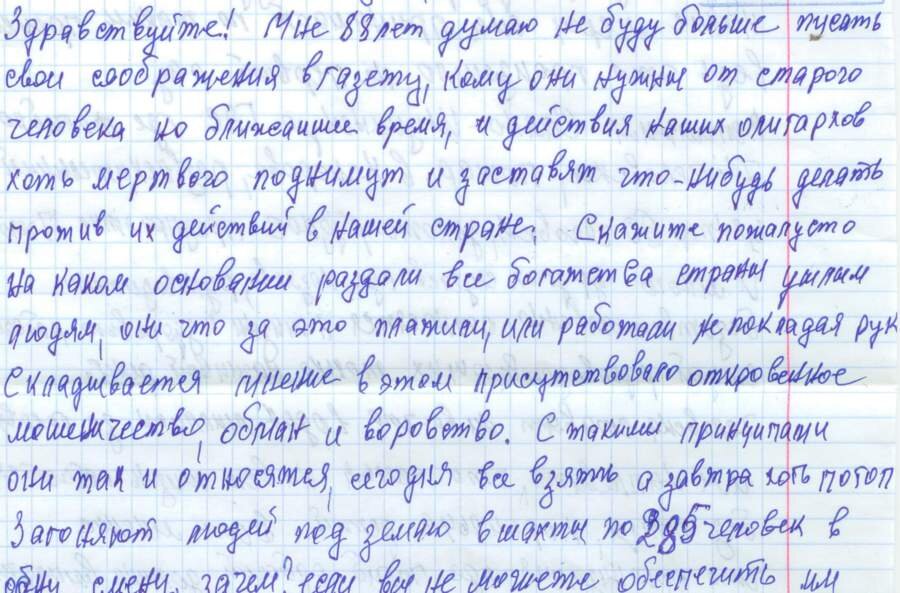 Здравствуйте! Мне 88 лет думаю не буду больше писать
свои соображения в газету, кому они нужны от старого
человека но ближайшие время, и действия наших олигархов
хоть мертвого поднимут и заставят что-нибудь делать
против их действий в нашей стране. Скажите пожалусто
на каком основании раздали все богатства страны ушлым
людям, они что за это платили, или работали не покладая рук
Складывается мнение в этом присутствовало откровенное
мошеничество, обман и воровство. С такими принципами
они так и относятся, сегодня все взять а завтра хоть потоп
Загоняют людей под землю в шахты по 285 человек в
одну смену, зачем? если вы не можете обеспечить им